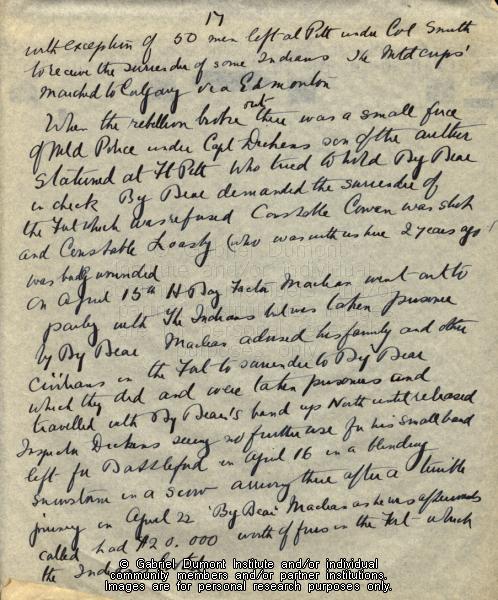 17
with exception of 50 men left at Pitt under Col Smith
to receive the surrender of some Indians The Mtd corps'
marched to Calgary via Edmonton
When the rebellion broke out there was a small force
of Mtd Police under Capt Dickens son of the author
stationed at Ft Pitt who tried to hold Big Bear
in check Big Bear demanded the surrender of
the Fort which was refused Constable Cowan was shot
and Constable Loasby (who was with us here 2 years ago)
was badly wounded
On April 15th H Bay Factor Maclean went out to
parley with the Indians but was taken prisoner
by Big Bear Maclean advised his family and other
civilians in the Fort to surrender to Big Bear
which they did and were taken prisoners and
travelled with Big Bear's band up North until released
Inspector Dickens seeing no further use for his small band
left for Battleford on April 16 in a blinding
snowstorm in a scow arriving there after a terrible
journey on April 22 'Big Bear' Maclean as he was afterwards
called had $20.000 worth of furs in the Fort which
the Indians
© Gabriel Dumont Institute and/or individual
community members and/or partner institutions.
Images are for personal research purposes only.